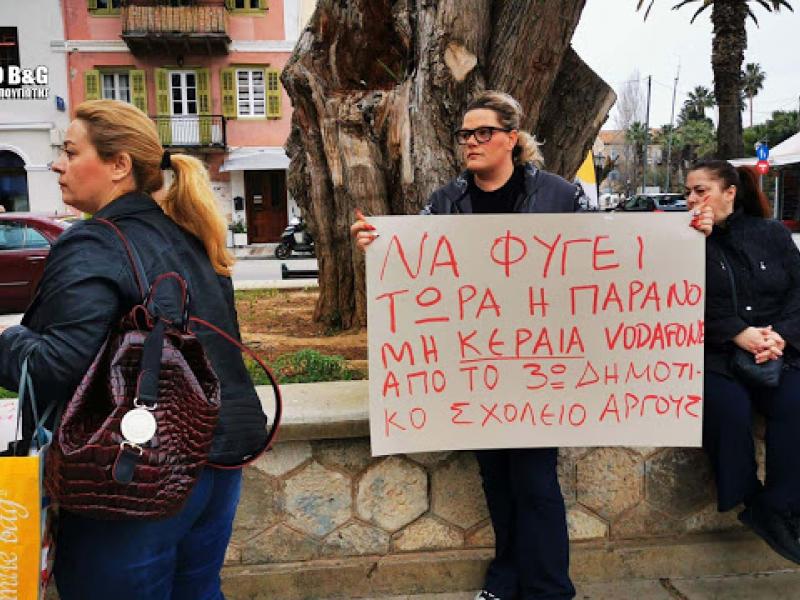 B&G
ΝΑ ΦΥΓΕΙ
ΤΩΡΑ Η ΠΑΡΑΝΟ
ΜΗ ΚΕΡΑΙΑ VODAFONE
ΑΠΟ ΤΟ 3º ΔΗΜΟΤΙ-
ΚΟ ΣΧΟΛΕΙΟ ΑΡΓΟΥΣ